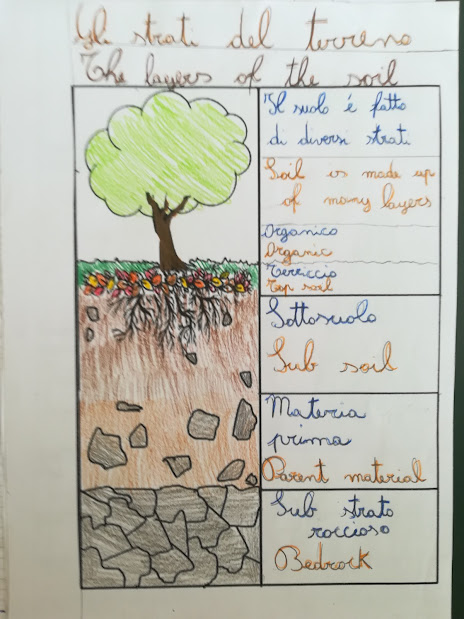 Gli strati del terreno
The layers of the soil
Il suolo é fatto
di diversi strati
Soil is made up
of many layers
Organico
Organic
Terriccio
Top soil
Sottosuolo
Sub soil
Materia
prima
Parent material
Sub strato
roccioso
Bedrock